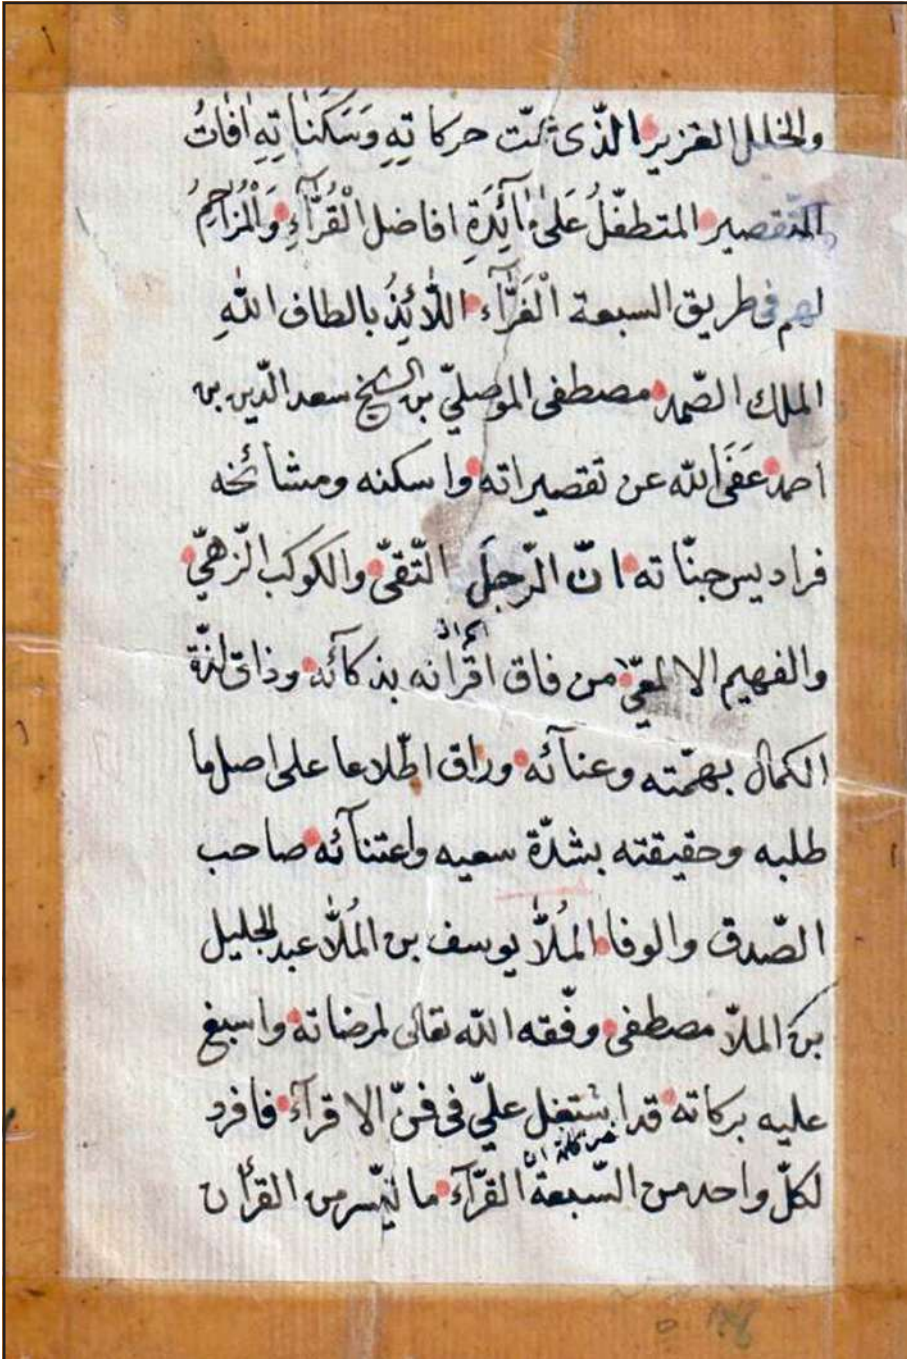 والخلل الغزير الذّى عمّت حركاتِهِ وَسَكَنَاتِهِ اٰفاتُ
التّقصير المتطفّلُ عَلىٰ مَآئِدَةِ افاضل الْقُرَّآءِ وَالْمُزَاحِمُ
لهم فى طريق السبعة الْغَرَّآء اللّائِذُ بالطاف اللّٰهِ
الملك الصّمد مصطفى الموصليّ بن الشيخ سعد الدّين بن
احمد عَفَى اللّه عن تقصيراته واسكنه ومشائخه
فراديس جنّاته انّ الرّجلَ التّقىّ والكوكب الزّهىّ
والفهيم الالمعىّ من فاق اقرانه بذكآئه وذاق لذّة
الكمال بهمّته وعنآئه وراق اطّلاعا على اصل ما
طلبه وحقيقته بشدّة سعيه واعتنآئه صاحب
الصّدق والوفا المُلّا يوسف بن المُلّا عبد الجليل
بن الملاّ مصطفى وفّقه اللّه تعالى لمرضاته واسبغ
عليه بركاته قد اشتغل علىّ فى فنّ الاقرآء فافرد
لكلّ واحد من السّبعة القرّآء ما تيسّر من القرأن